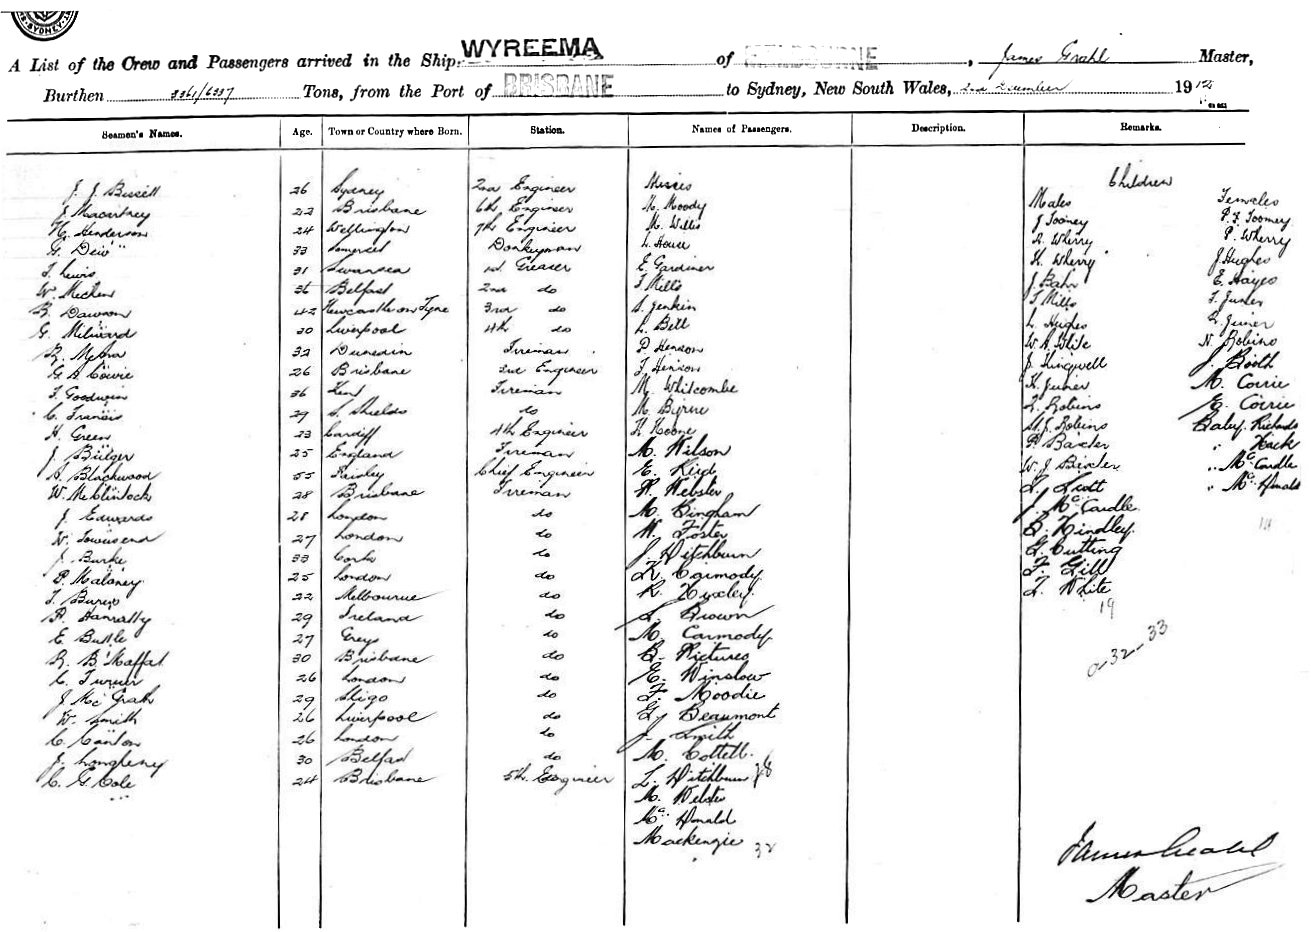 SYDNEY
A List of the Crew and Passengers arrived in the Ship, WYREEMA of MELBOURNE, James Grahl Master,
Burthen 3361/6337 Tons, from the Port of BRISBANE to Sydney, New South Wales, 2nd December 1912
Seamen's Names. Age. Town or Country where Born. Station. Names of Passengers. Description. Remarks.
Children
J. J. Bissell 26 Sydney 2nd Engineer Misses Males Females
J. Macartney 22 Brisbane 6th Engineer M. Moody J. Toomey P. F. Toomey
H. Henderson 24 Wellington 7th Engineer M. Willis A. Wherry P. Wherry
G. Dew 33 Somerset Donkeyman L. House K. Wherry J. Hughes
T. Lewis 31 Swansea 1st Greaser E. Gardiner J. Bahr E. Hayes
W. Mechen 36 Belfast 2nd do T. Mills T. Mills T. Juner
R. Dawson 42 Newcastle on Tyne 3rd do S. Jenkin L. Hughes R. Juner
G. Milward 30 Liverpool 4th do L. Bell W. A. White N. Robins
R. 32 Dunedin Fireman P. Henson J. Hingwell J. Booth
G A Cowie 26 Brisbane 3rd Engineer J. Henson K. Juner M. Corrie
T. Goodwin 36 Kent Fireman M. Whitcombe L. Robins E. Corrie
C. Francis 29 S. Shields do M. Byrne W. J. Robins Baby. Richards
H. Green 23 Cardiff 4th Engineer K. Koone P. Baxter " Hack
J. Bulger 25 England Fireman M. Wilson W. J. Bixter " McCardle
A. Blackwood 55 Paisley Chief Engineer E. Reid L. Scott " McDonald
W. McClintock 28 Brisbane Fireman H. Webster J. McCardle
J. Edwards 28 London do M. Bingham B. Hindley 14
W. Townsend 27 London do W. Foster G. Cutting
J. Burke 33 Cork do J. Hitchburn F. Gill
P. Maloney 25 London do K. Carmody L. White
T. 22 Melbourne do R. Huxley 19
P. Hanratty 29 Ireland do L. Brown
E. Buttle 27 Grays do M. Carmody 0-32-33
R. B. Moffat 30 Brisbane do B. Pictures
C. Turner 26 London do E. Winslow
J. McGrath 29 Sligo do F. Moodie
W. Smith 26 Liverpool do G. Beaumont
C. Canton 26 London do J. Smith
J. Longheny 30 Belfast do M. Cottell
C. G. Cole 24 Brisbane 5th Engineer L. Hitchburn 28
M. Webster
McDonald
Mackenzie 32
James Grahl
Master